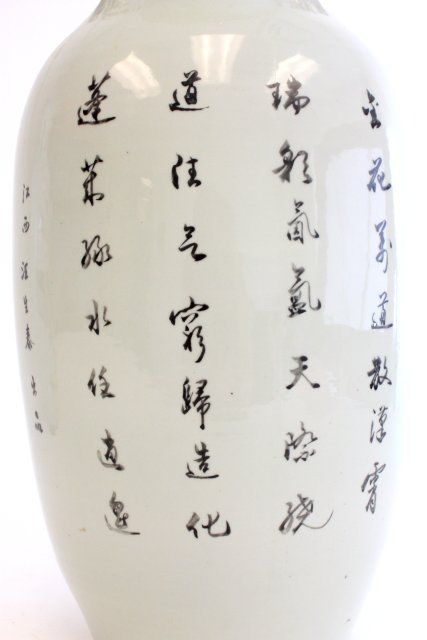 金花萬道散漢霄
瑞彩氤氳天際繞
道法無窮歸造化
蓬萊綠水任逍遙
江西汪生泰出品